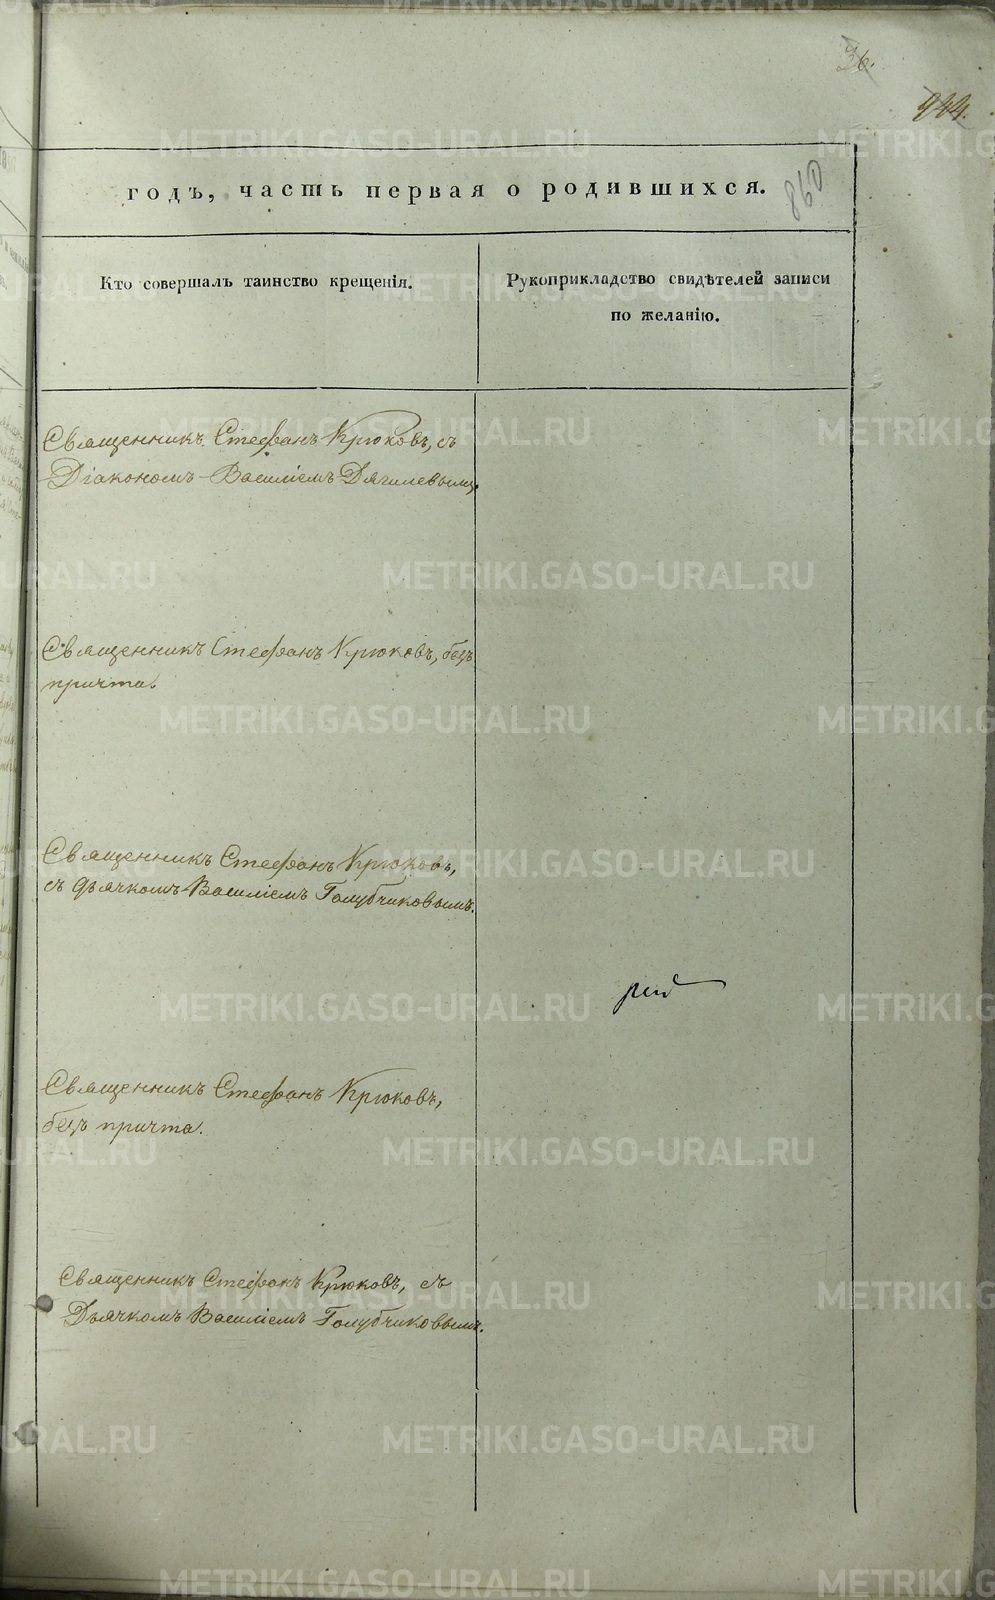 36.
944.
860
годъ, часть первая о родившихся.
Кто совершалъ таинство крещенія.
Рукоприкладство свидѣтелей записи
по желанію.
Священникъ Стефанъ Крюковъ, съ
Діакономъ Василіемъ Дягилевымъ.
Священникъ Стефанъ Крюковъ, безъ
причта.
Священникъ Стефанъ Крюковъ,
съ дьячкомъ Василіемъ Голубчиковымъ.
Священникъ Стефанъ Крюковъ,
безъ причта.
Священникъ Стефанъ Крюковъ, съ
Дьячкомъ Василіемъ Голубчиковымъ.
METRIKI.GASO-URAL.RU